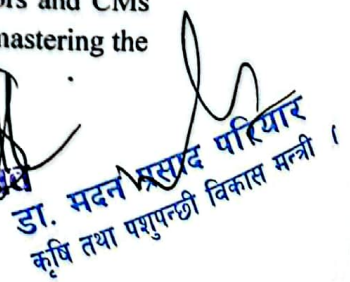 ors and CMS
mastering the
डा. मदन प्रसाद परियार
कृषि तथा पशुपन्छी विकास मन्त्री ।